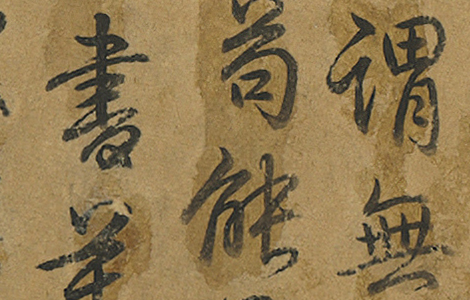 謂無
苟能
書